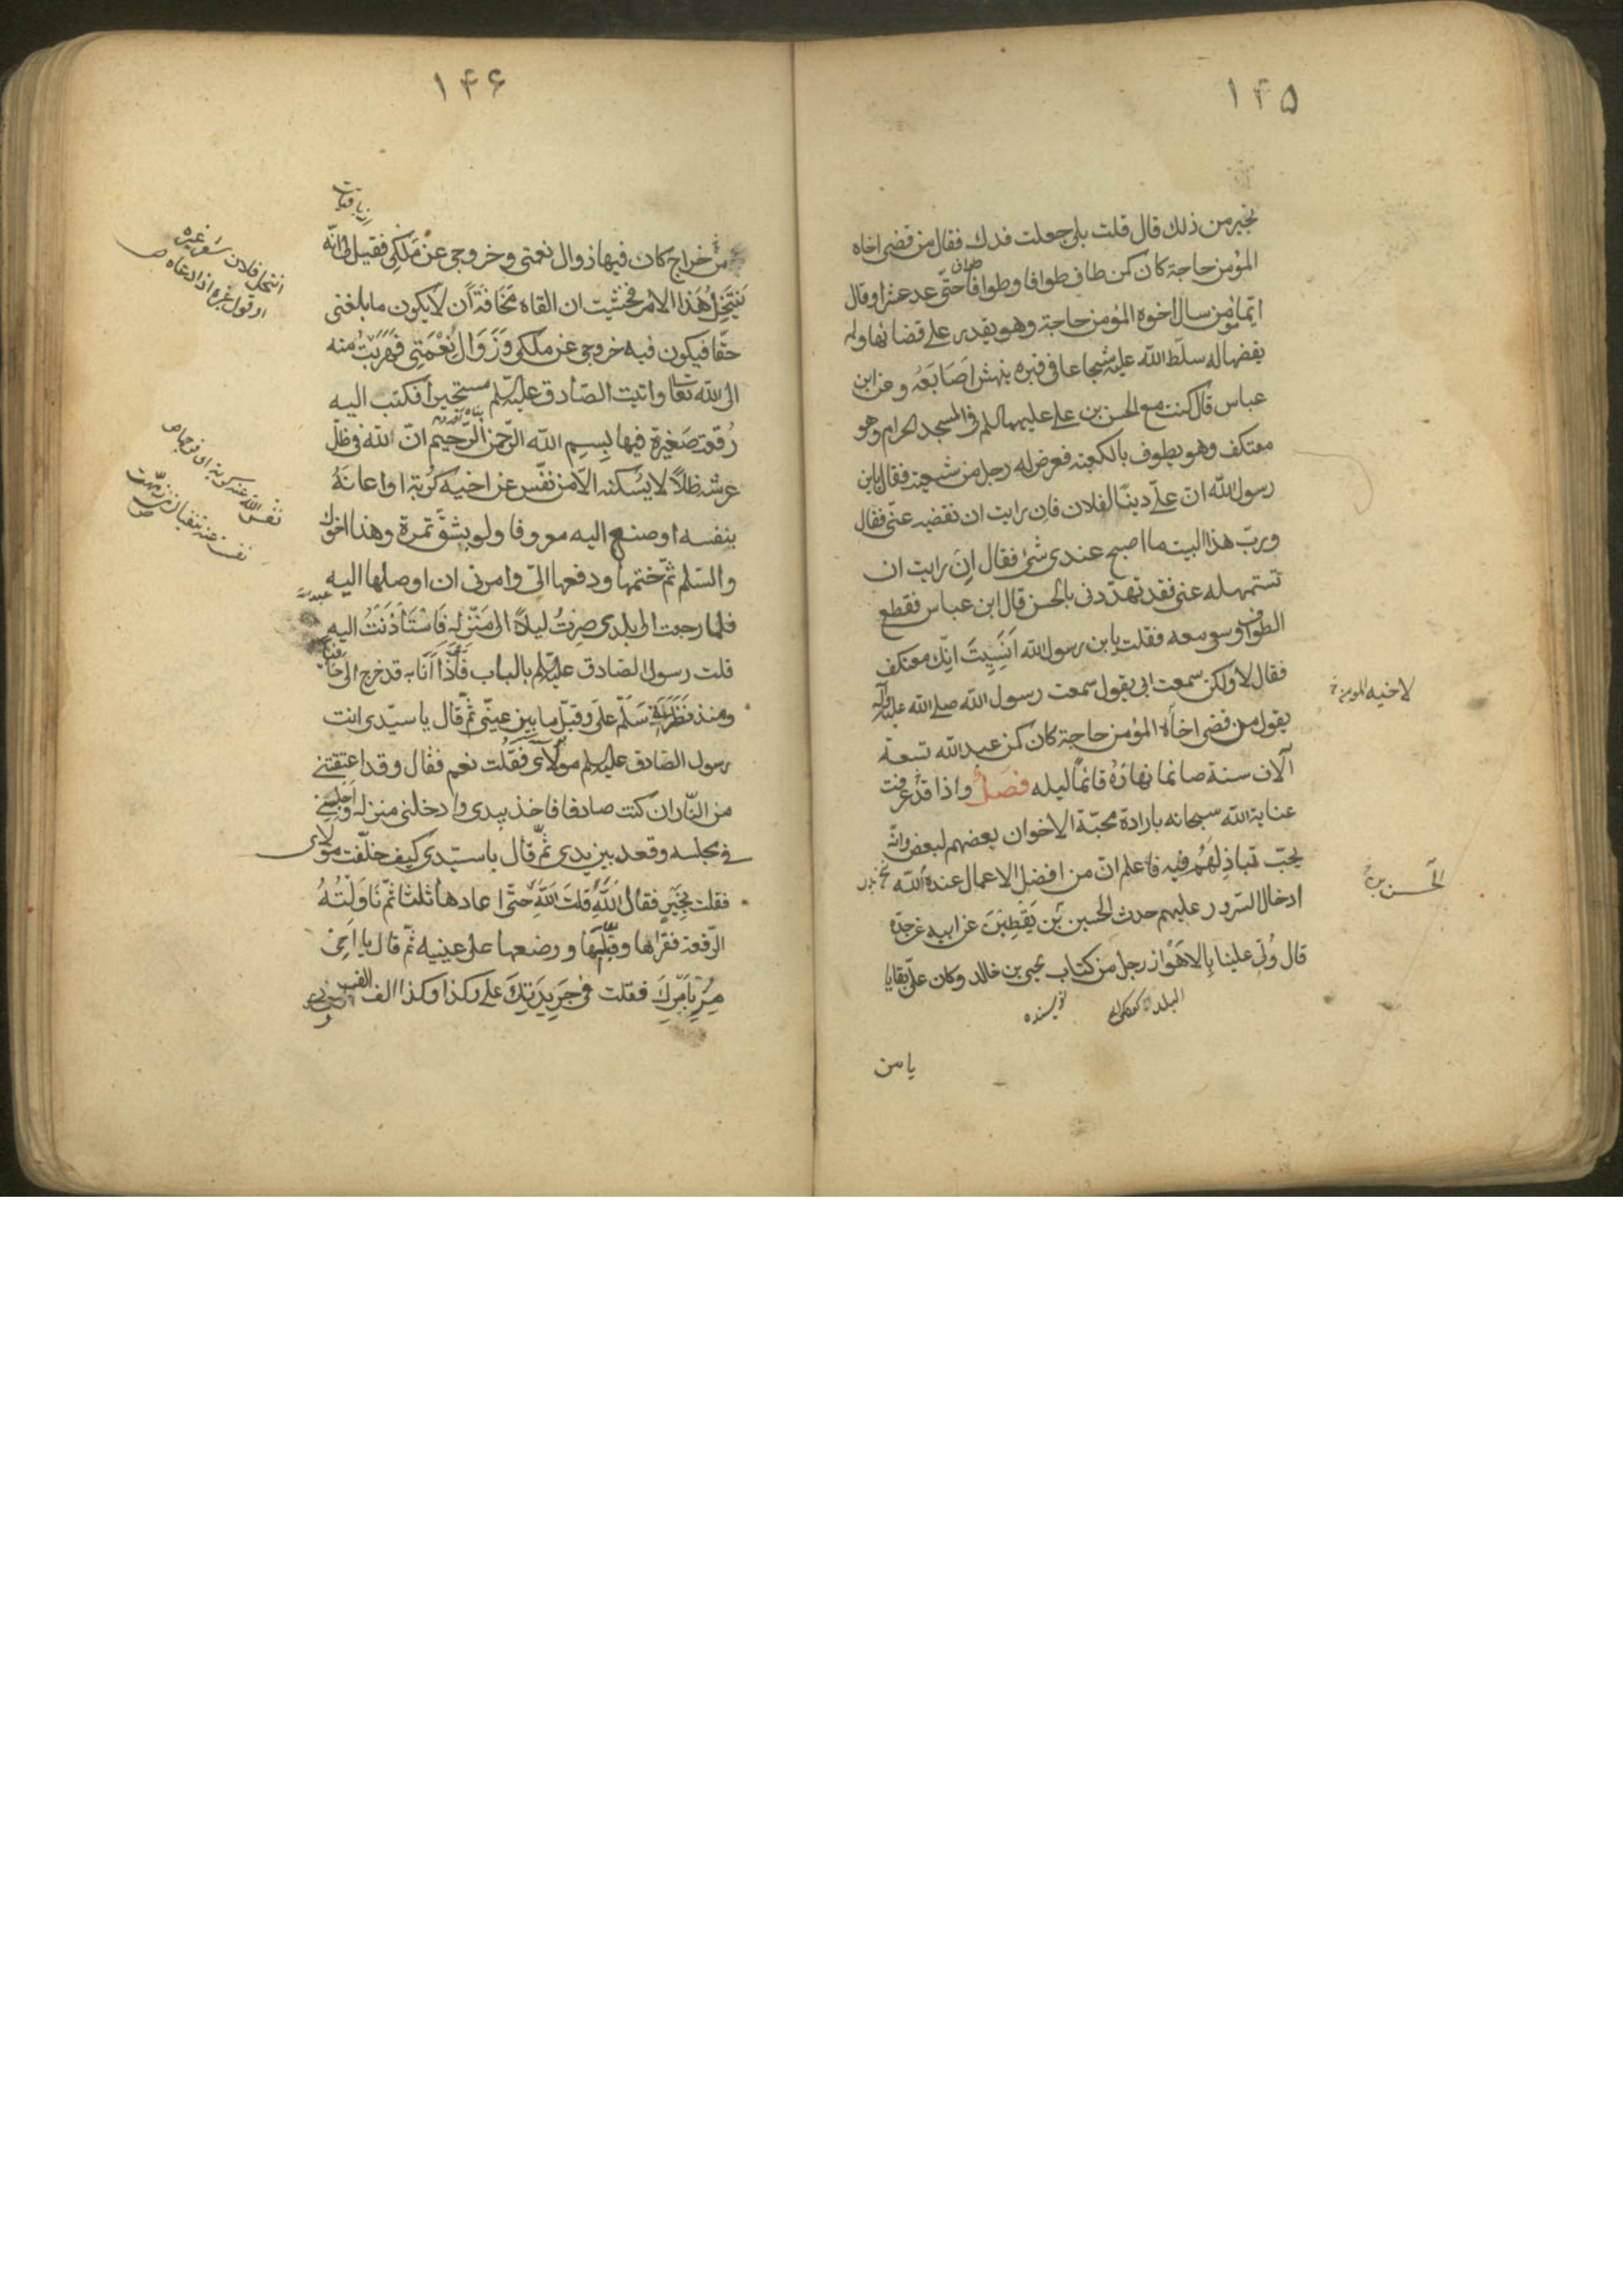 ١۴۵
بخير من ذلك قال قلت بلى جعلت فدك فقال من قضى اخاه
المؤمن حاجة كان كمن طاف طوافا وطوافا حتى عد عشرا وقال
ايما مؤمن سال اخوه المؤمن حاجة وهو يقدر على قضائها ولم
يقضها له سلط الله عليه شجاعا فى قبره ينهش اصابعه وعن ابن
عباس قال كنت مع الحسن بن على عليهما السلم فى المسجد الحرام وهو
معتكف وهو يطوف بالكعبة فعرض له رجل من شيعته فقال يابن
رسول الله ان علىّ دينًا لفلان فان رايت ان تقضيه عنى فقال
ورب هذا البيت ما اصبح عندى شئ فقال ان رايت ان
تستمهله عنى فقد تهددنى بالحبس قال ابن عباس فقطع
الطواف وسعى معه فقلت يابن رسول الله انسيت انك معتكف
فقال لا ولكن سمعت ابى يقول سمعت رسول الله صلى الله عليه وآله
يقول من قضى اخاه المؤمن حاجة كان كمن عبد الله تسعة
لاخيه المومن
آلاف سنة صائما نهاره قائمًا ليله فصل واذا قد عرفت
عناية الله سبحانه بارادة محبة الاخوان بعضهم لبعض وانه
يحب تباذلهم فيه فاعلم ان من افضل الاعمال عنده الله
ادخال السرور عليهم حدث الحسين بن يقطين عن ابيه عن جده
الحسن بن
قال ولى علينا بالاهواز رجل من كتاب يحيى بن خالد وكان علىّ بقايا
البلد نويسنده
يا من
١۴۶
من خراج كان فيها زوال نعمتى وخروجى عن ملكى فقيل لى انه
ينتحل هذا الامر فخشيت ان القاه مخافة ان لا يكون ما بلغنى
انتحل فلان شعر غيره
او قول غيره اذا ادعاه ص
حقا فيكون فيه خروجى عن ملكى وزوال نعمتى فهربت منه
الى الله تعا واتيت الصادق عليه السلم مستجيرا فكتب اليه
رقعة صغيرة فيها بسم الله الرحمن الرحيم ان الله فى ظل
عرشه ظلاًّ لا يسكنه الا من نفّس عن اخيه كربة او اعانه
بنفسه او صنع اليه معروفا ولو بشق تمرة وهذا اخوك
والسلم ثم ختمها ودفعها الىّ وامرنى ان اوصلها اليه
فلما رجعت الى بلدى صرت ليلاً الى منزله فاستأذنت اليه
قلت رسول الصادق عليه السلم بالباب فاذا انا به قد خرج الىّ حافيًا
ومنذ نظرنى سلم علىّ وقبل ما بين عينى ثم قال يا سيدى انت
رسول الصادق عليه السلم مولاى فقلت نعم فقال وقد اعتقتنى
من النار ان كنت صادقا فاخذ بيدى وادخلنى منزله واجلسنى
فى مجلسه وقعد بين يدى ثم قال يا سيدى كيف خلفت مولاى
فقلت بخير فقال الله قلت الله حتى اعادها ثلثا ثم ناولته
الرقعة فقراها وقبلها ووضعها على عينيه ثم قال يا اخى
مر بامرك فقلت فى جريدتك على كذا وكذا الف الف